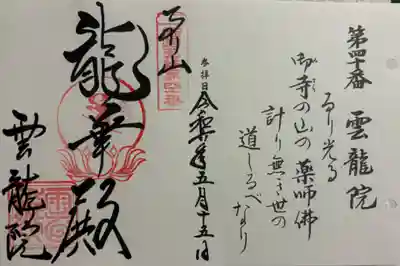 第四十番 雲龍院
るり光る
御寺の山の薬師佛
計り無き世の
道しるべなり
参拝日 令和年五月十五日
龍華殿
雲龍院